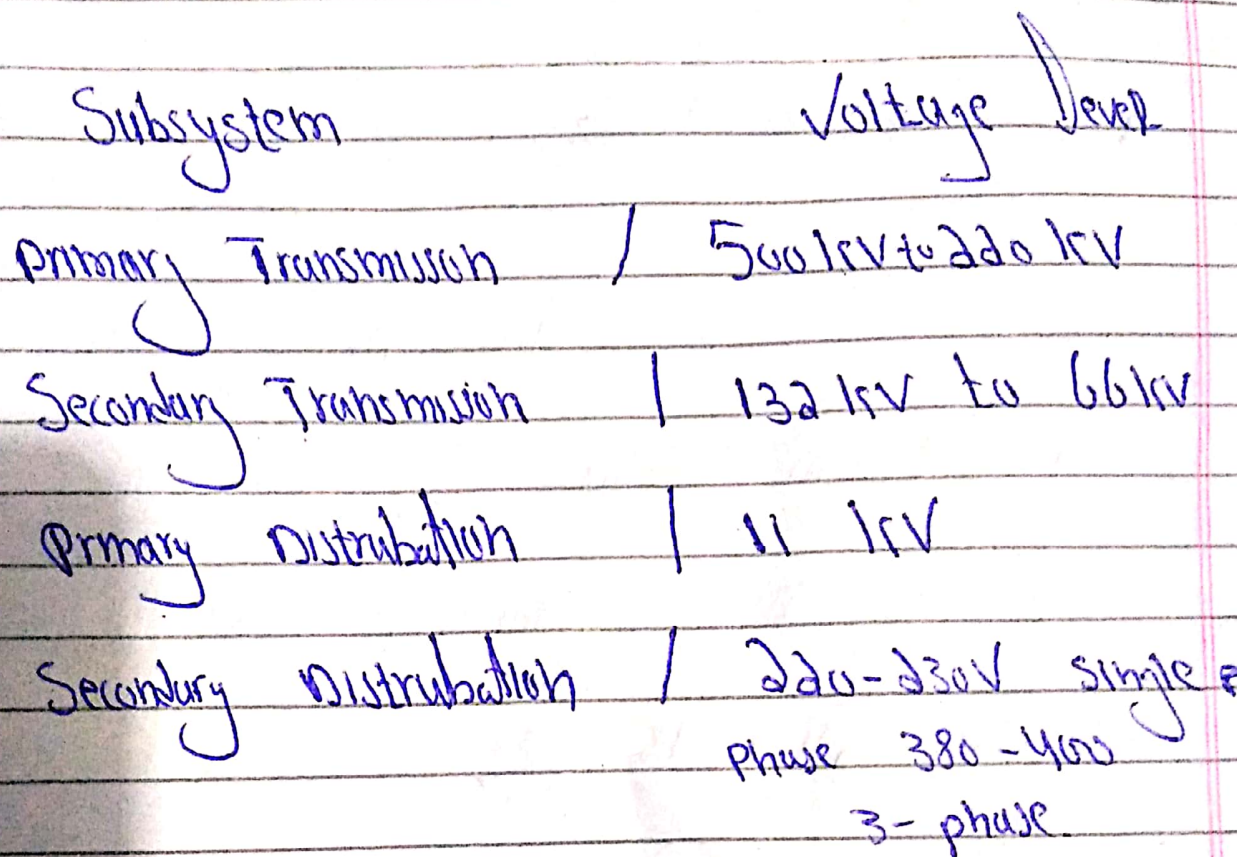 Subsystem Voltage Level
Primary Transmission / 500 kV to 220 kV
Secondary Transmission / 132 kV to 66 kV
Primary Distrubation / 11 kV
Secondary Distrubation / 220-230V single
Phase 380-400
3-phase.